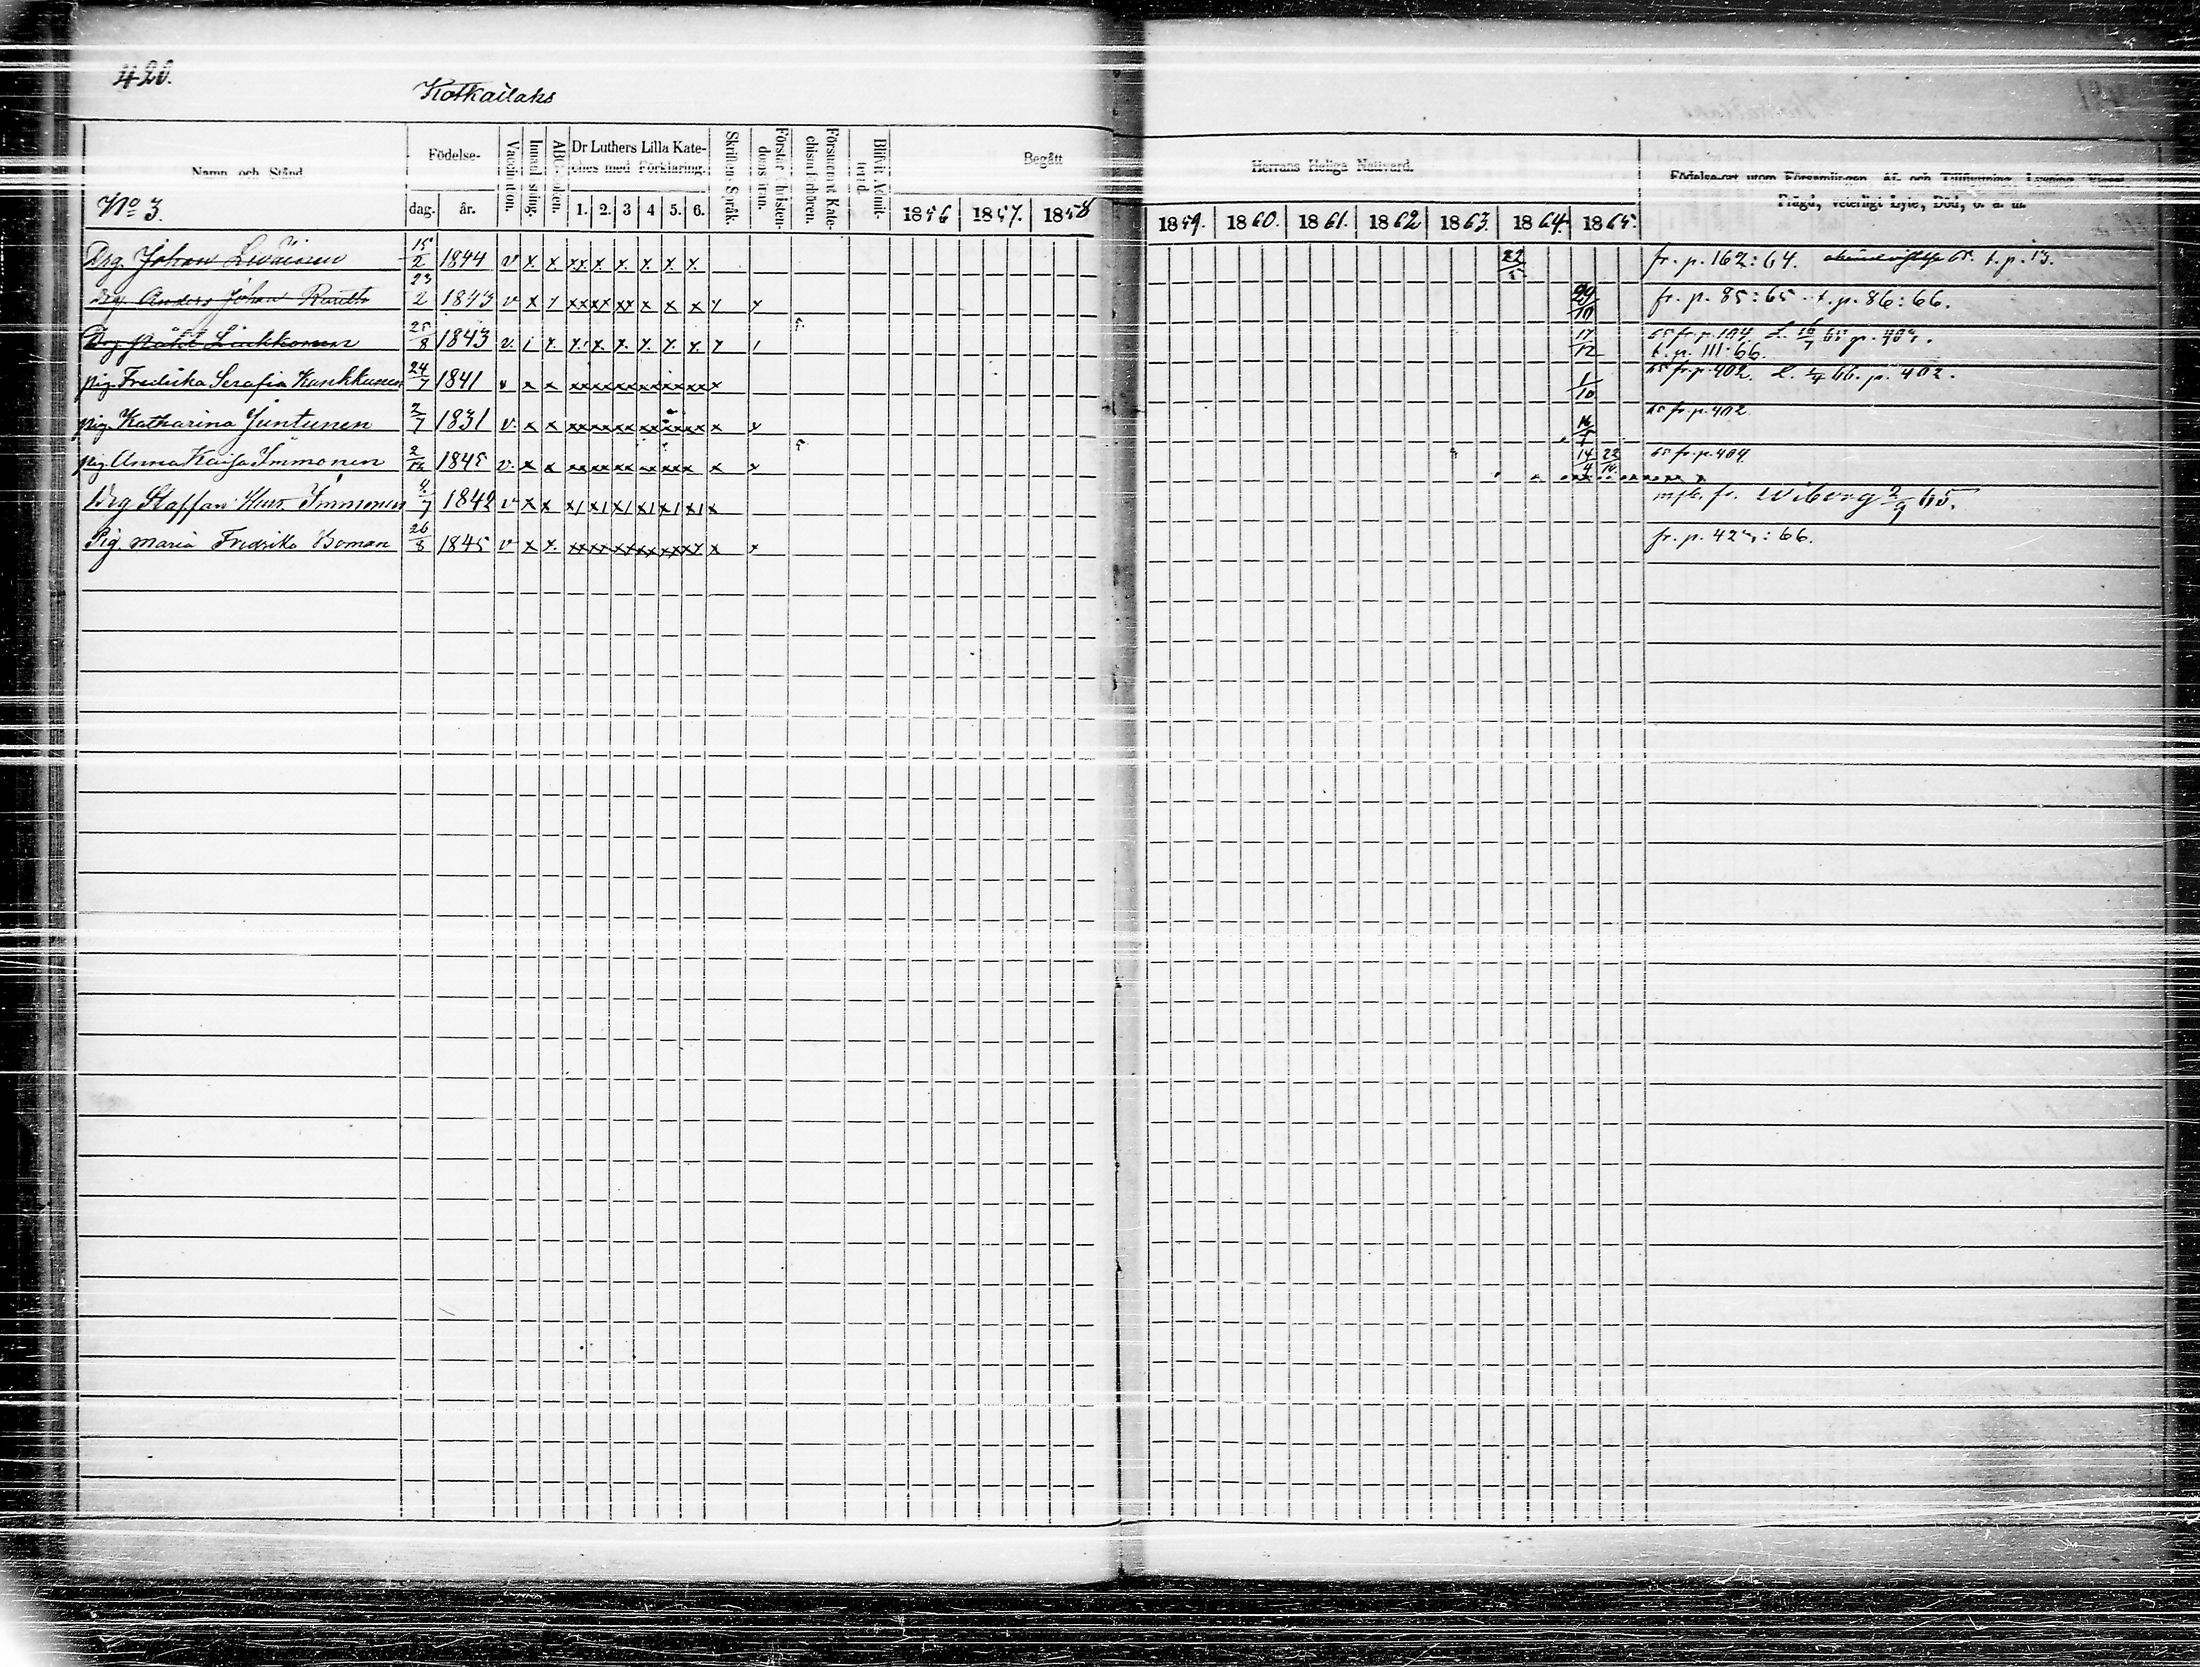 420.
Kotkailaks
Namn och Stånd
Födelse-
dag. år.
Vaccination.
Innanläsning.
ABC-boken.
Dr Luthers Lilla Kate-
ches med Förklaring.
1. 2. 3 4 5. 6.
Skriftens Språk.
Förstår christen-
domsläran.
Försummat Kate-
chismiförhören.
Blifvit Admit-
terad.
Begått
Herrans Heliga Nattvard.
1856 1857. 1858
1859. 1860. 1861. 1862 1863. 1864. 1865.
Födelse-ort utom Församlingen, Af- och Tillflyttning, Lysning, Vigsel,
Frägd, veterligt Lyte, Död, o. a. m.
No 3.
Drg. Johan 15/2 1844 v x x xx x x. x. x. x. 22/5 fr. p. 162:64. t. p. 13.
Drg. Anders Johan 23/2 1843 v x x xx xx xx x x x x x 29/10 fr. p. 85:65 t. p. 86:66.
Drg. Påhl 25/8 1843 v. x. x. x. x. x. x. 17/12 65 fr. p. 404.
t. p. 111:66.
pig. Fredrika Serafia 24/7 1841 v x x xx xx xx xx xx xx x 1/10 65 fr. p. 402. L. 66. p. 402.
pig. Katharina Juntunen 2/7 1831 v. x x xx xx xx xx xx xx x x 65 fr. p. 402
pig. Anna Kaisa Immonen 2/12 1845 v. x x xx xx xx xx xx x x 14/4 65 fr. p. 404
Drg Staffan Immonen 4/7 1842 v x x x x x x x x x mfb. fr. Wiborg 2/9 65.
Pig. Maria Fredrika Boman 26/8 1845 v x x. xx xx xx xx xx xx x x fr. p. :66.